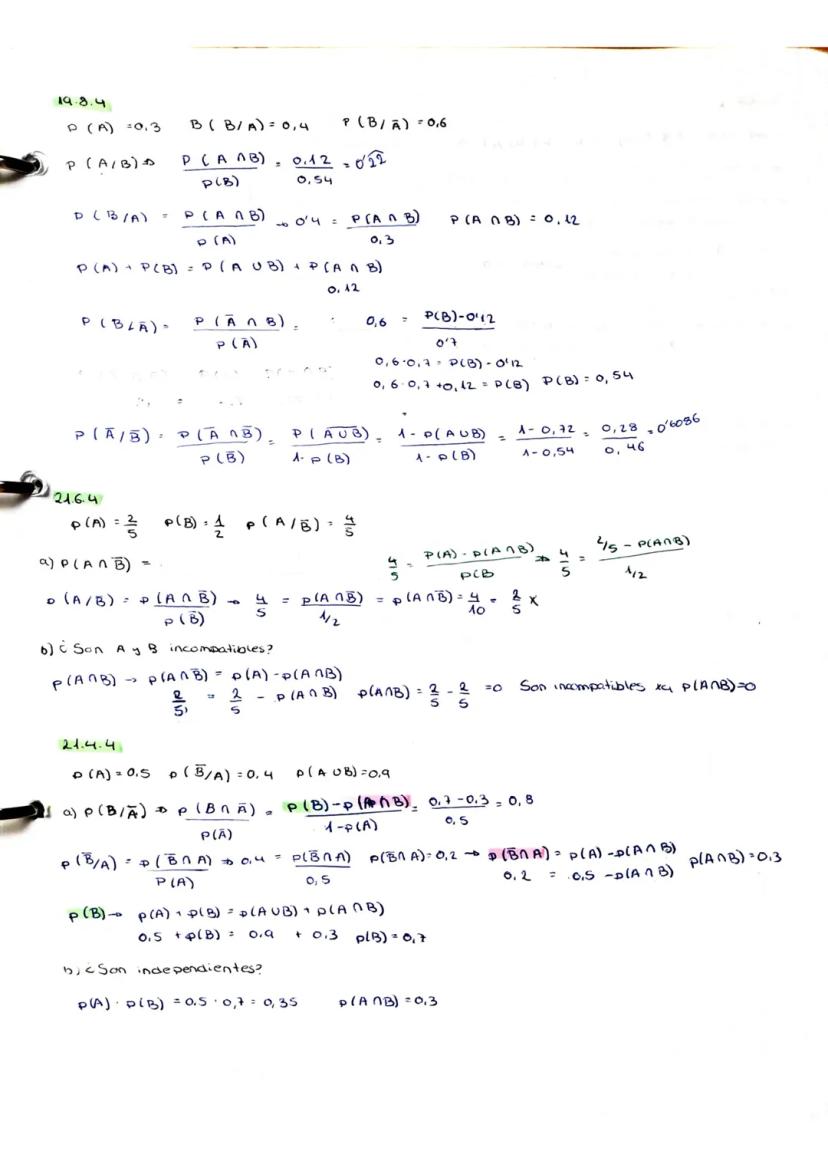 19.8.4
P(A) = 0.3   B(B/A) = 0,4   P(B/Ā) = 0,6
P(A/B) ⇒ P(A∩B)/P(B) = 0,12/0,54 = 0'2͡2
P(B/A) = P(A∩B)/P(A) → 0'4 = P(A∩B)/0.3   P(A∩B) = 0,12
P(A) + P(B) = P(A∪B) + P(A∩B)
0,12
P(B/Ā) = P(Ā∩B)/P(Ā) =   0,6 = P(B)-0'12/0'7
0,6·0,7 = P(B) - 0'12
0,6·0,7 + 0,12 = P(B)   P(B) = 0,54
P(Ā/B̄) = P(Ā∩B̄)/P(B̄) = P(A̅∪̅B̅)/1-P(B) = 1-P(A∪B)/1-P(B) = 1-0,72/1-0,54 = 0,28/0,46 = 0'6086
21.6.4
P(A) = 2/5   P(B) = 1/2   P(A/B̄) = 4/5
a) P(A∩B̄) =   4/5 = P(A)-P(A∩B)/P(B ⇒ 4/5 = 2/5 - P(A∩B)/1/2
P(A/B) = P(A∩B̄)/P(B̄) → 4/5 = P(A∩B̄)/1/2 = P(A∩B̄) = 4/10 = 2/5 x
b) ¿Son A y B incompatibles?
P(A∩B) → P(A∩B̄) = P(A) - P(A∩B)
2/5 = 2/5 - P(A∩B)   P(A∩B) = 2/5 - 2/5 = 0   Son incompatibles xq P(A∩B)=0
21.4.4
P(A) = 0.5   P(B̄/A) = 0,4   P(A∪B) = 0,9
a) P(B/Ā) ⇒ P(B∩Ā)/P(Ā) = P(B)-P(A∩B)/1-P(A) = 0,7-0.3/0,5 = 0,8
P(B̄/A) = P(B̄∩A)/P(A) ⇒ 0,4 = P(B̄∩A)/0,5   P(B̄∩A) = 0,2 → P(B̄∩A) = P(A) - P(A∩B)   P(A∩B) = 0.3
0.2 = 0,5 - P(A∩B)
P(B) → P(A) + P(B) = P(A∪B) + P(A∩B)
0.5 + P(B) = 0.9 + 0.3   P(B) = 0,7
b) ¿Son independientes?
P(A) · P(B) = 0.5 · 0,7 = 0,35   P(A∩B) = 0,3